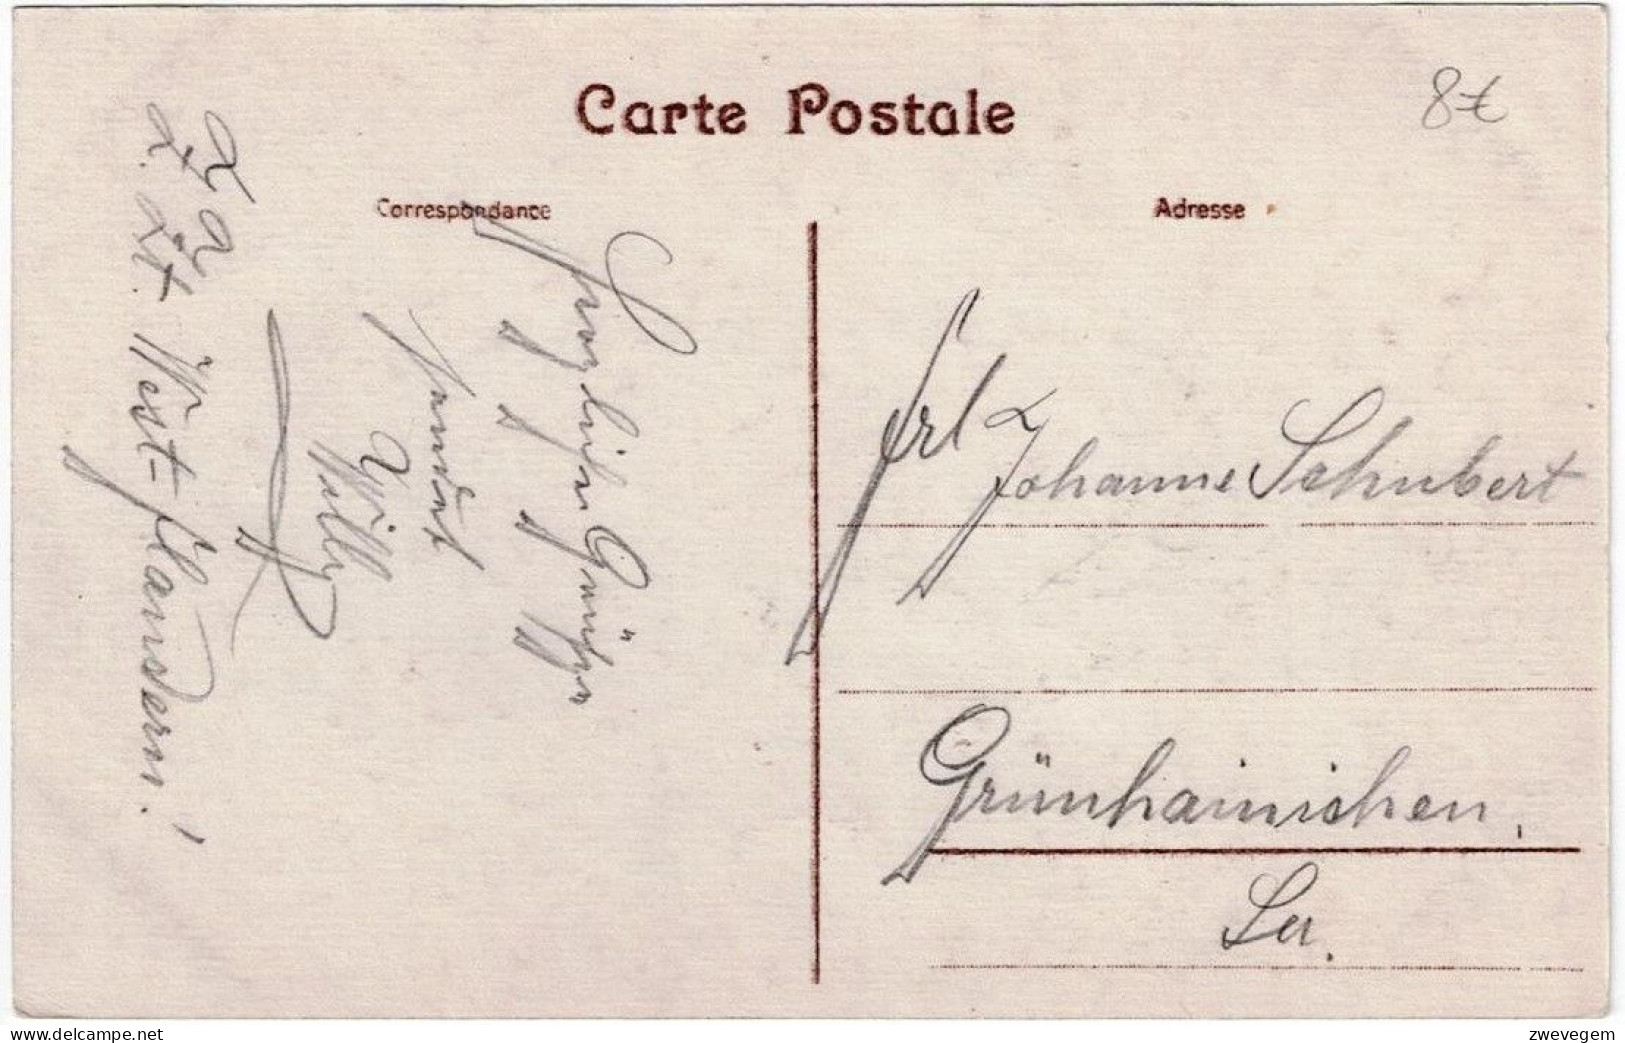 Carte Postale
8€
Correspondance
Adresse
Herzlichen Grüße
sendet
Willy
z. Zt. West-Flandern!
Frl Johanne Schubert
Grünhainichen,
Sa.
delcampe.net
zwevegem